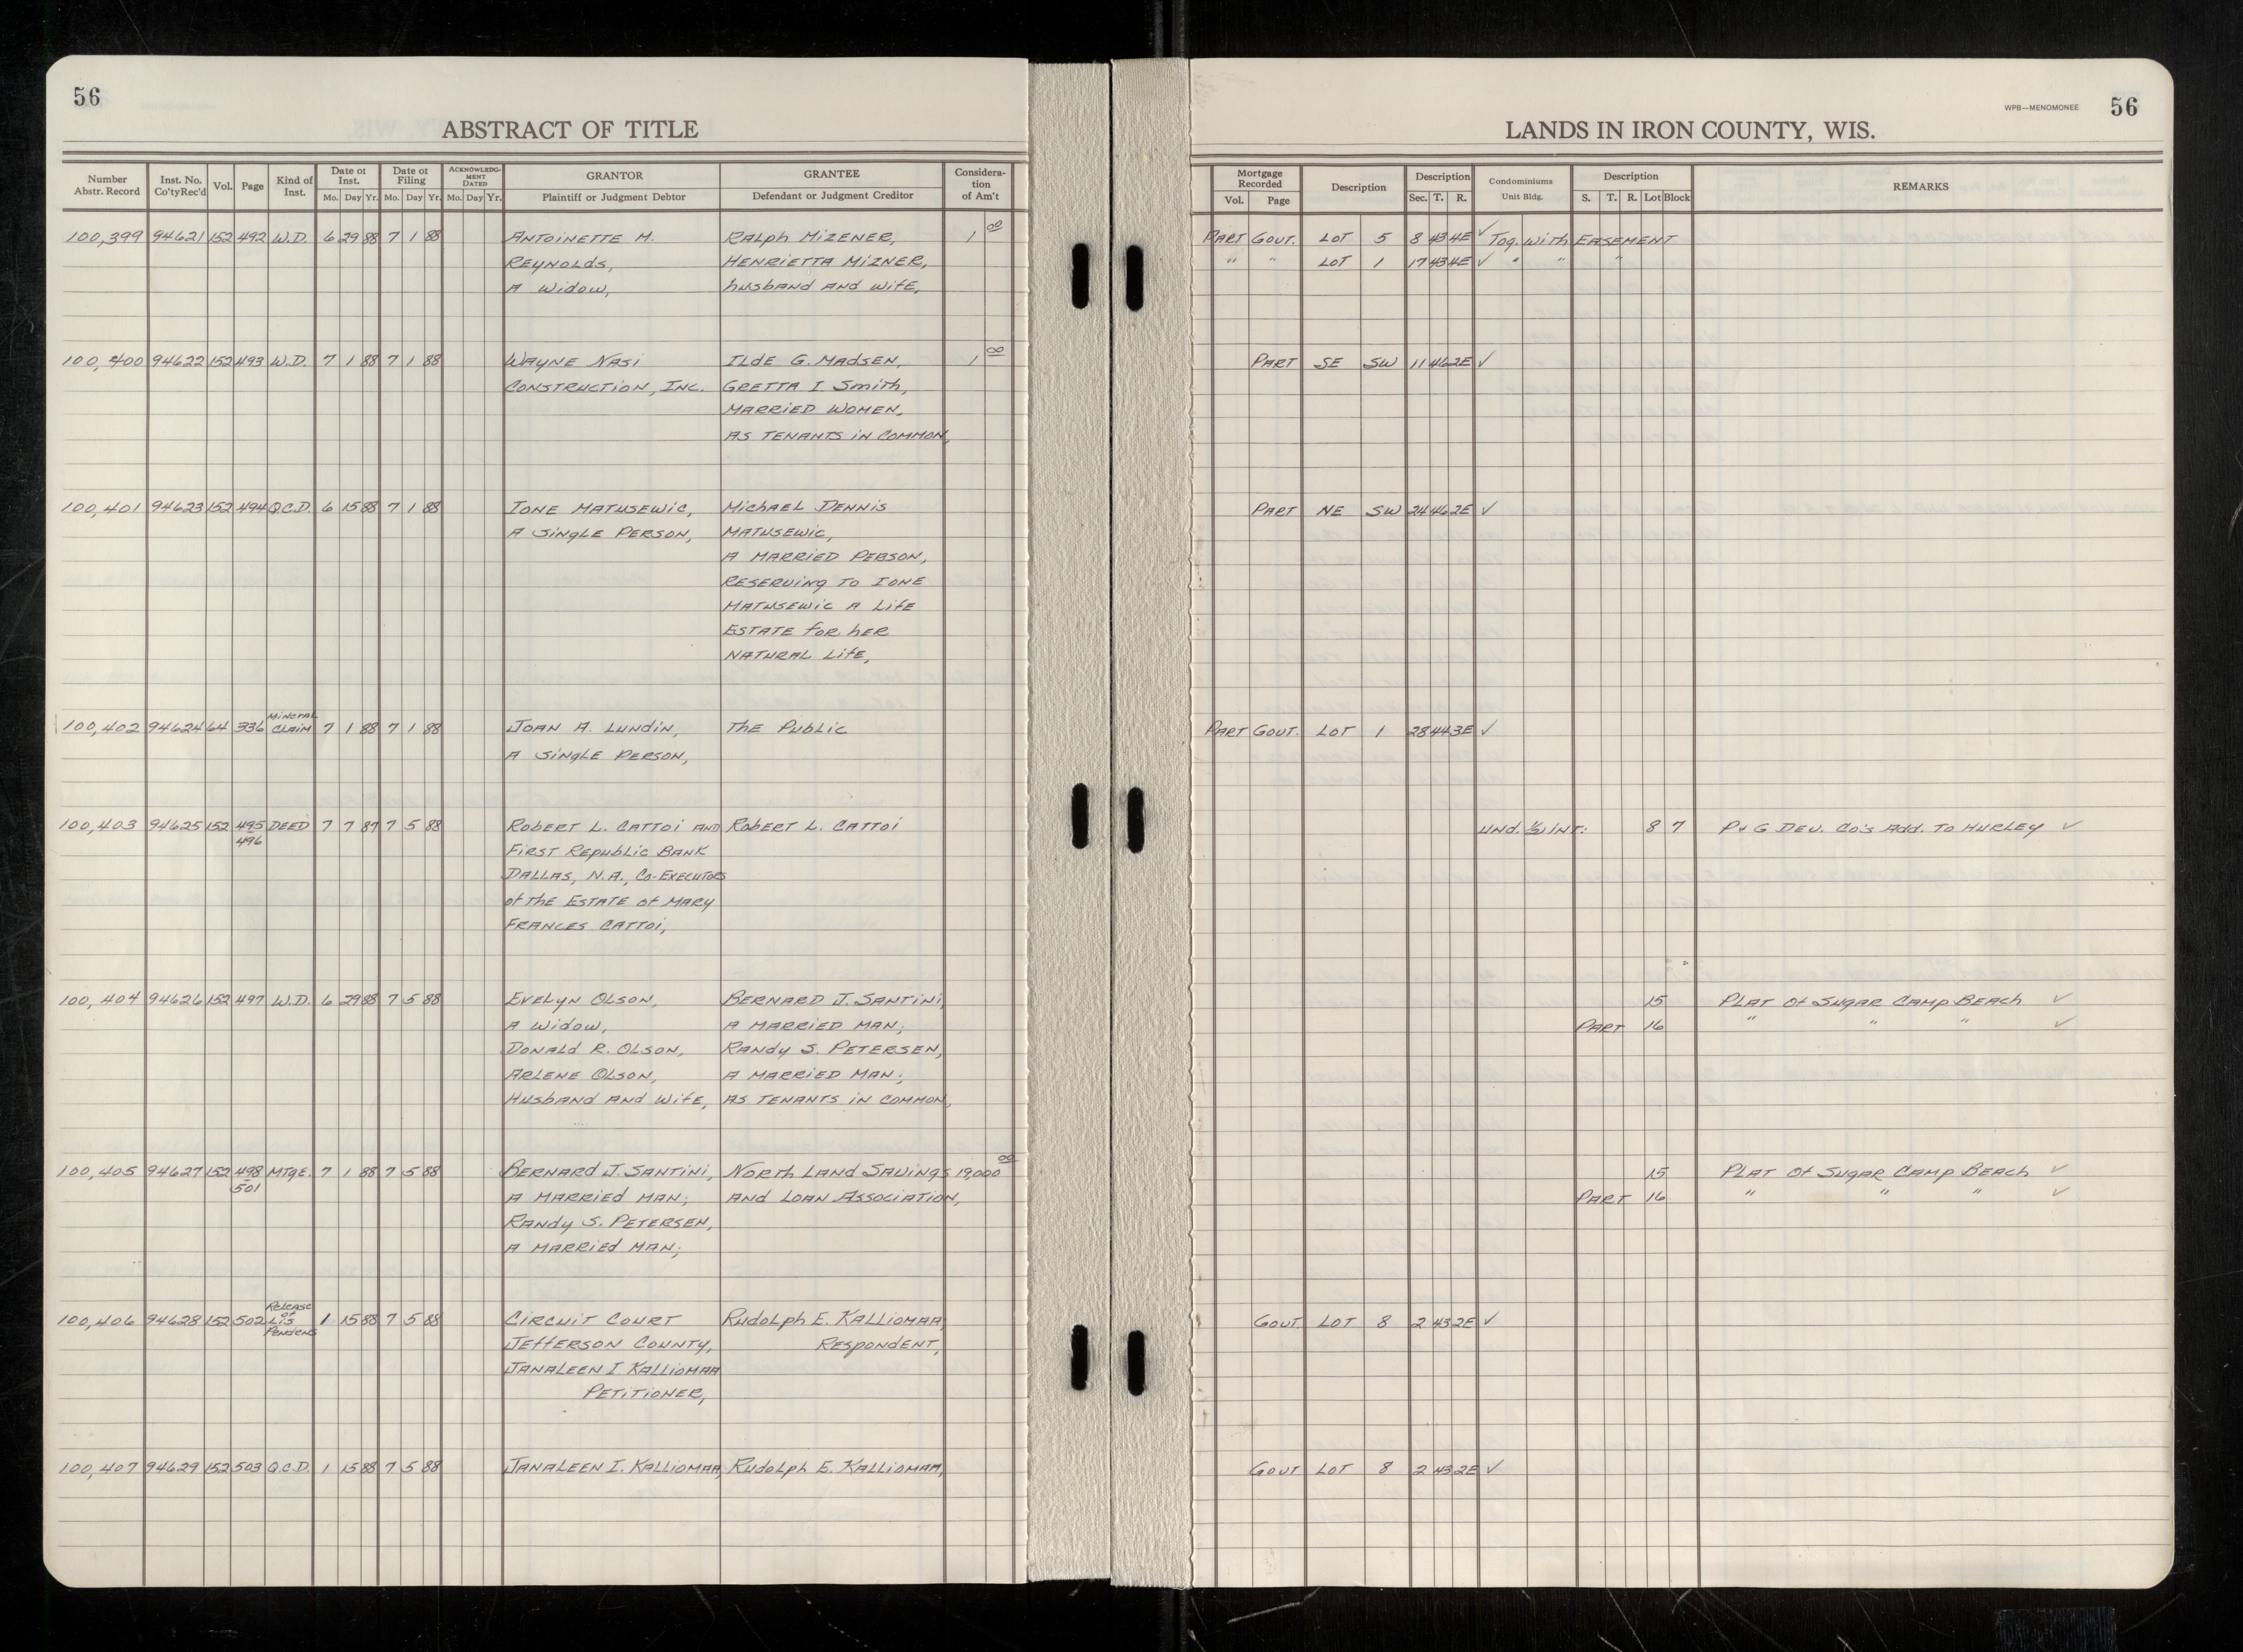 56
ABSTRACT OF TITLE
Number Abstr. Record | Inst. No. Co'ty Rec'd | Vol. | Page | Kind of Inst. | Date of Inst. Mo. Day Yr. | Date of Filing Mo. Day Yr. | ACKNOWLEDGMENT DATED Mo. Day Yr. | GRANTOR Plaintiff or Judgment Debtor | GRANTEE Defendant or Judgment Creditor | Considera-tion of Am't
100,399 94621 152 492 W.D. 6 29 88 7 1 88 ANTOINETTE M. RALPH MIZENER, 1 00
REYNOLDS, HENRIETTA MIZNER,
A WIDOW, HUSBAND AND WIFE,
100,400 94622 152 493 W.D. 7 1 88 7 1 88 WAYNE NASI ILDE G. MADSEN, 1 00
CONSTRUCTION, INC. GRETTA I SMITH,
MARRIED WOMEN,
AS TENANTS IN COMMON,
100,401 94623 152 494 Q.C.D. 6 15 88 7 1 88 IONE MATUSEWIC, MICHAEL DENNIS
A SINGLE PERSON, MATUSEWIC,
A MARRIED PERSON,
RESERVING TO IONE
MATUSEWIC A LIFE
ESTATE FOR HER
NATURAL LIFE,
MINERAL
100,402 94624 64 336 CLAIM 7 1 88 7 1 88 JOAN A. LUNDIN, THE PUBLIC
A SINGLE PERSON,
100,403 94625 152 495 DEED 7 7 87 7 5 88 ROBERT L. CATTOI AND ROBERT L. CATTOI
496 FIRST REPUBLIC BANK
DALLAS, N.A., CO-EXECUTORS
OF THE ESTATE OF MARY
FRANCES CATTOI,
100,404 94626 152 497 W.D. 6 29 88 7 5 88 EVELYN OLSON, BERNARD J. SANTINI,
A WIDOW, A MARRIED MAN;
DONALD R. OLSON, RANDY S. PETERSEN,
ARLENE OLSON, A MARRIED MAN;
HUSBAND AND WIFE, AS TENANTS IN COMMON,
100,405 94627 152 498 MTGE. 7 1 88 7 5 88 BERNARD J. SANTINI, NORTH LAND SAVINGS 19,000 00
501 A MARRIED MAN; AND LOAN ASSOCIATION,
RANDY S. PETERSEN,
A MARRIED MAN;
RELEASE OF
100,406 94628 152 502 LIS 1 15 88 7 5 88 CIRCUIT COURT RUDOLPH E. KALLIOMAA,
PENDENS JEFFERSON COUNTY, RESPONDENT,
JANALEEN I. KALLIOMAA
PETITIONER,
100,407 94629 152 503 Q.C.D. 1 15 88 7 5 88 JANALEEN I. KALLIOMAA, RUDOLPH E. KALLIOMAA,
WPB—MENOMONEE 56
LANDS IN IRON COUNTY, WIS.
Mortgage Recorded Vol. Page | Description | Description Sec. T. R. | Condominiums Unit Bldg. | Description S. T. R. Lot Block | REMARKS
PART GOVT. LOT 5 8 43 4E ✓ TOG. WITH EASEMENT
" " LOT 1 17 43 4E ✓ " " "
PART SE SW 11 46 2E ✓
PART NE SW 24 46 2E ✓
PART GOVT. LOT 1 28 44 3E ✓
UND. 1/2 INT. 8 7 P & G DEV. CO'S ADD. TO HURLEY ✓
15 PLAT OF SUGAR CAMP BEACH ✓
PART 16 " " " ✓
15 PLAT OF SUGAR CAMP BEACH ✓
PART 16 " " " ✓
GOVT. LOT 8 2 43 2E ✓
GOVT LOT 8 2 43 2E ✓